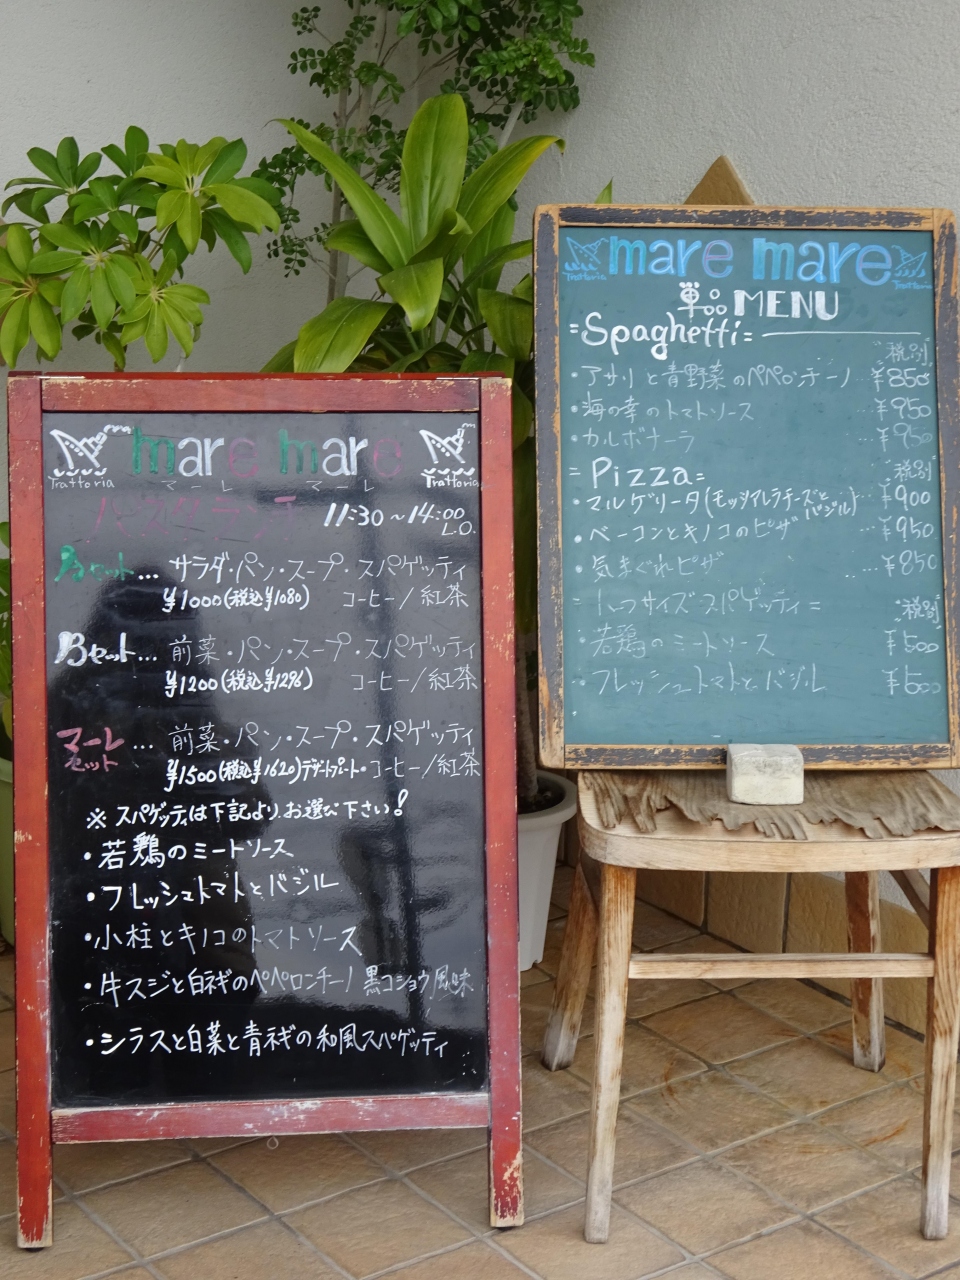 mare mare
Trattoria
Trattoria
マーレ マーレ
パスタランチ 11:30~14:00
L.O.
Aセット... サラダ・パン・スープ・スパゲッティ
¥1000(税込¥1080) コーヒー/紅茶
Bセット... 前菜・パン・スープ・スパゲッティ
¥1200(税込¥1296) コーヒー/紅茶
マーレセット... 前菜・パン・スープ・スパゲッティ
¥1500(税込¥1620)デザートプレート・コーヒー/紅茶
※スパゲッティは下記より、お選び下さい!
・若鶏のミートソース
・フレッシュトマトとバジル
・小柱とキノコのトマトソース
・牛スジと白ネギのペペロンチーノ 黒コショウ風味
・シラスと白菜と青ネギの和風スパゲッティ
mare mare
Trattoria
Trattoria
単品 MENU
=Spaghetti=
税別
・アサリと青野菜のペペロンチーノ ¥850
・海の幸のトマトソース ...¥950
・カルボナーラ ...¥950
=Pizza= 税別
・マルゲリータ(モッツァレラチーズとバジル) ¥900
・ベーコンとキノコのピザ ...¥950
・気まぐれピザ ...¥850
=ハーフサイズスパゲッティ= 税別
・若鶏のミートソース ¥500
・フレッシュトマトとバジル ¥500